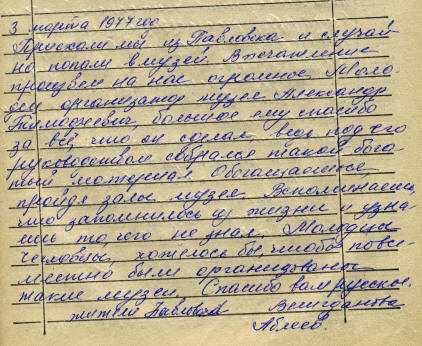 3 марта 1977 год
Приехали мы из Павловска и случай-
но попали в музей. Впечатление
произвел на нас огромное. Моло-
дец организатор музея Александр
Тимофеевич большое ему спасибо
за всё, что он сделал, ведь под его
руководством собрался такой бога-
тый материал. Обогащаешься,
пройдя залы музея. Вспоминаешь,
что запомнилось из жизни и узна-
ешь то, чего не знал. Молодцы
челябинцы, хотелось бы, чтобы повсе-
местно были организованы
такие музеи. Спасибо вам
жители Павловска
Аблеев.